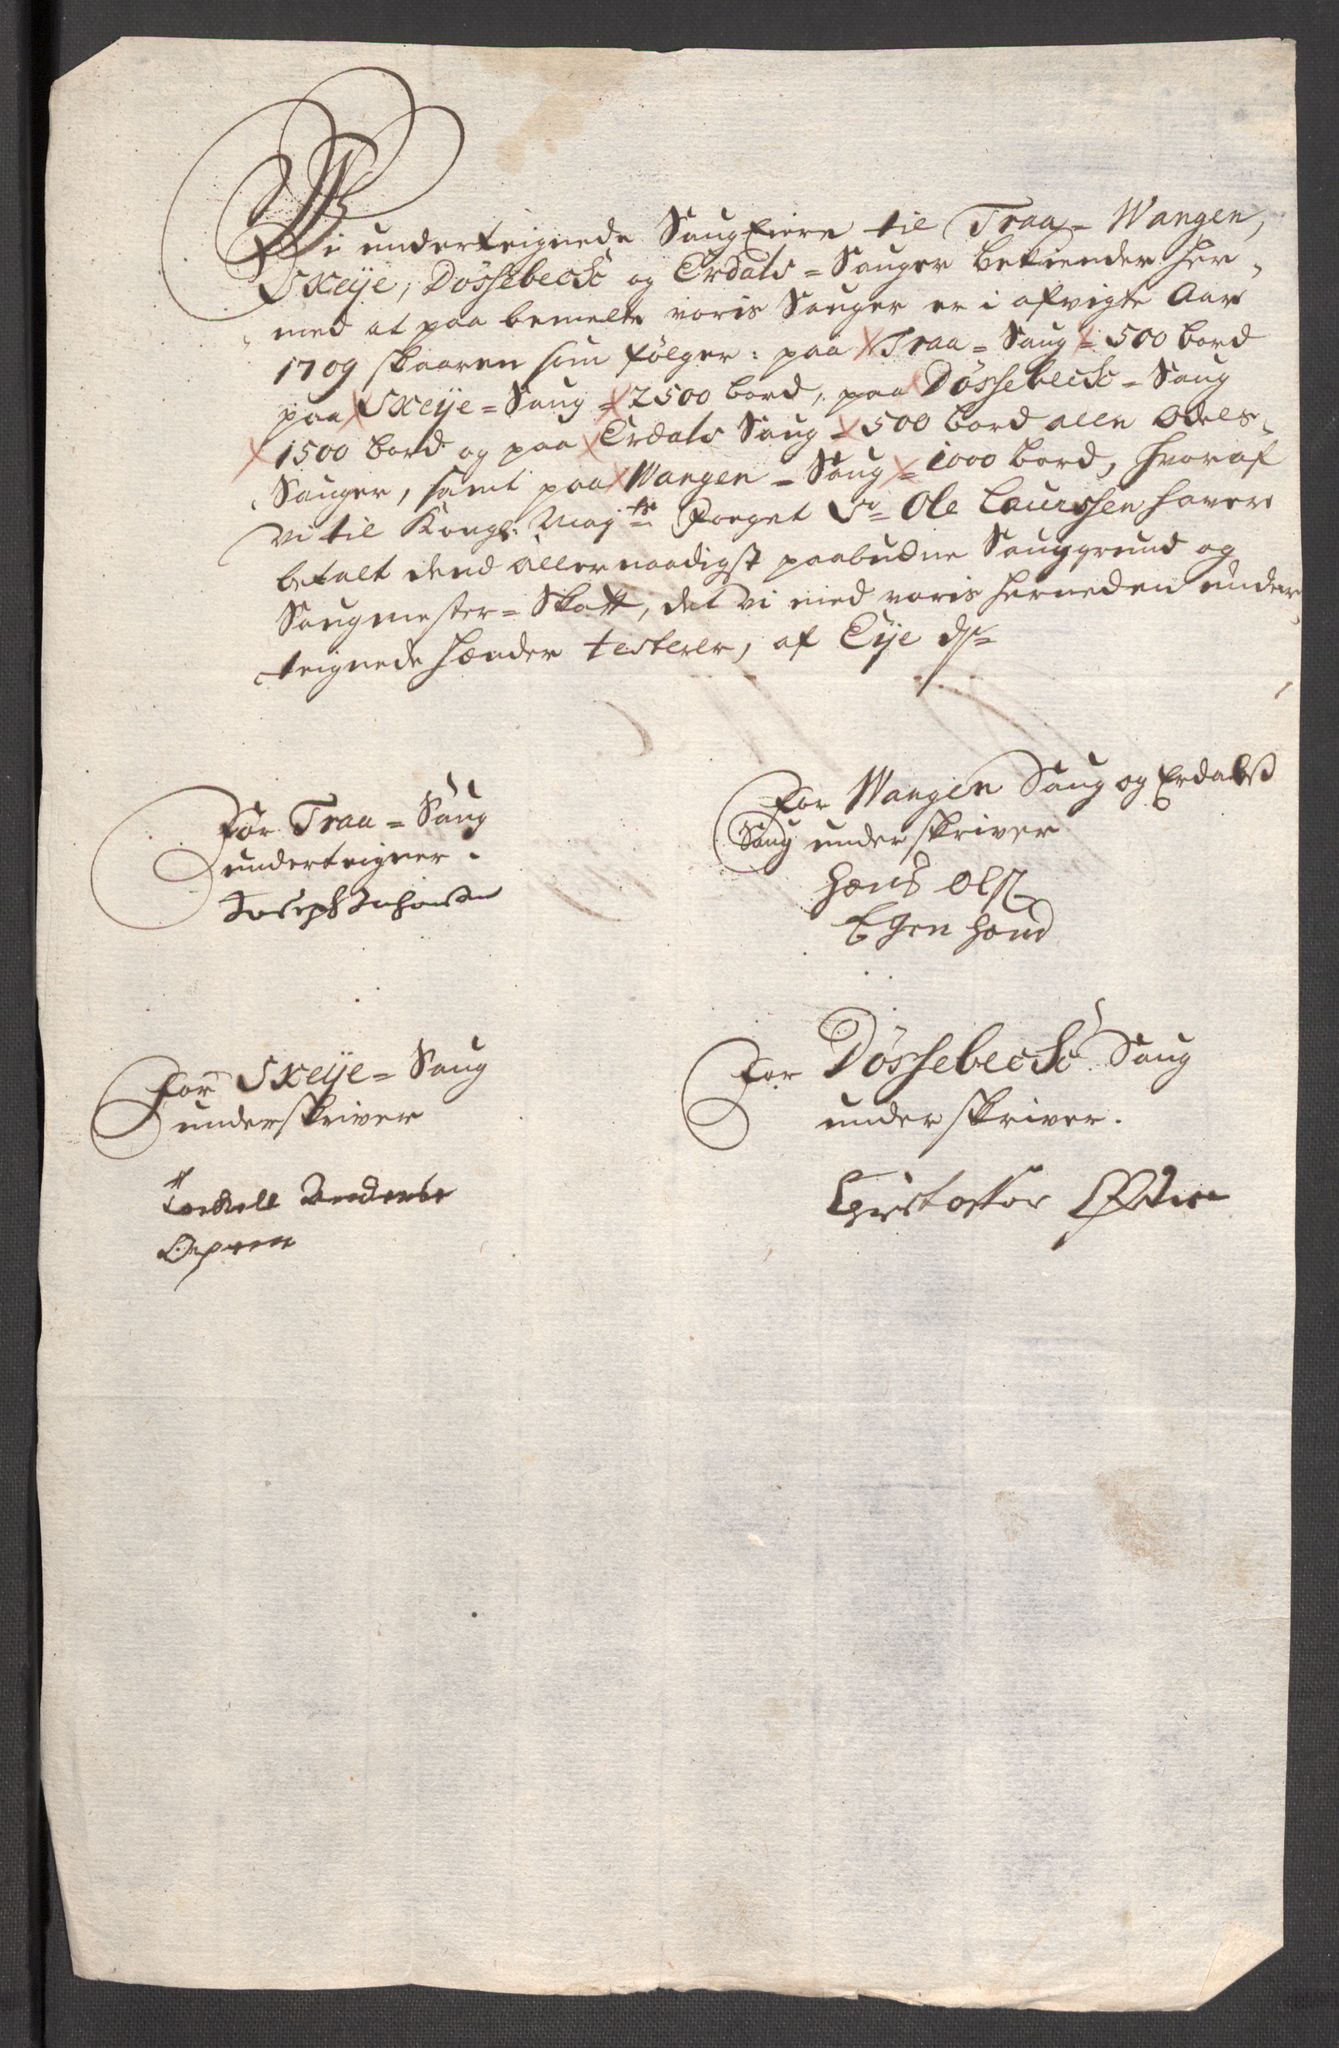 Wi underteignede Saug Eiere til Traa- Wangen,
Skeije, Døssebeck og Erdals=Sauger bekiender her-
med at paa bemelte voris Sauger er i afvigte Aar
1709 skaaren som følger: paa Traa=Saug= 500 bord
paa Skeije=Saug=2500 bord, paa Døssebeck=Saug
1500 bord og paa Erdals Saug=500 bord alle Odels-
Sauger, samt paa Wangen=Saug=1000 bord, hvoraf
vi til Kongl: Maj:ts Foeget Sr Ole Laurssen haver
betalt dend allernaadigst paabudne Sauggrund og
Saugmester=Skatt, det vi med voris herneden under
teignede hænder testerer, af Eije ds
For Traa=Saug
underteigner.
Joseph Johansen
For Wangen Saug og Erdals
Saug underskriver
Hans Ols:
Egen Hand
For Skeije=Saug
underskriver
For Døssebeck Saug
underskriver.
Christoffor